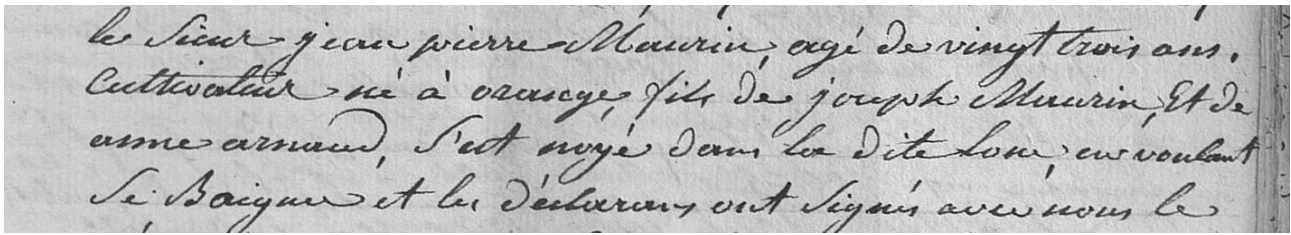 le Sieur jean pierre Maurin, agé de vingt trois ans.
Cultivateur né à orange, fils de joseph Maurin, Et de
anne arnaud, S'est noyé dans la dite lone, en voulant
Se Baigner et les déclarans ont Signés avec nous le